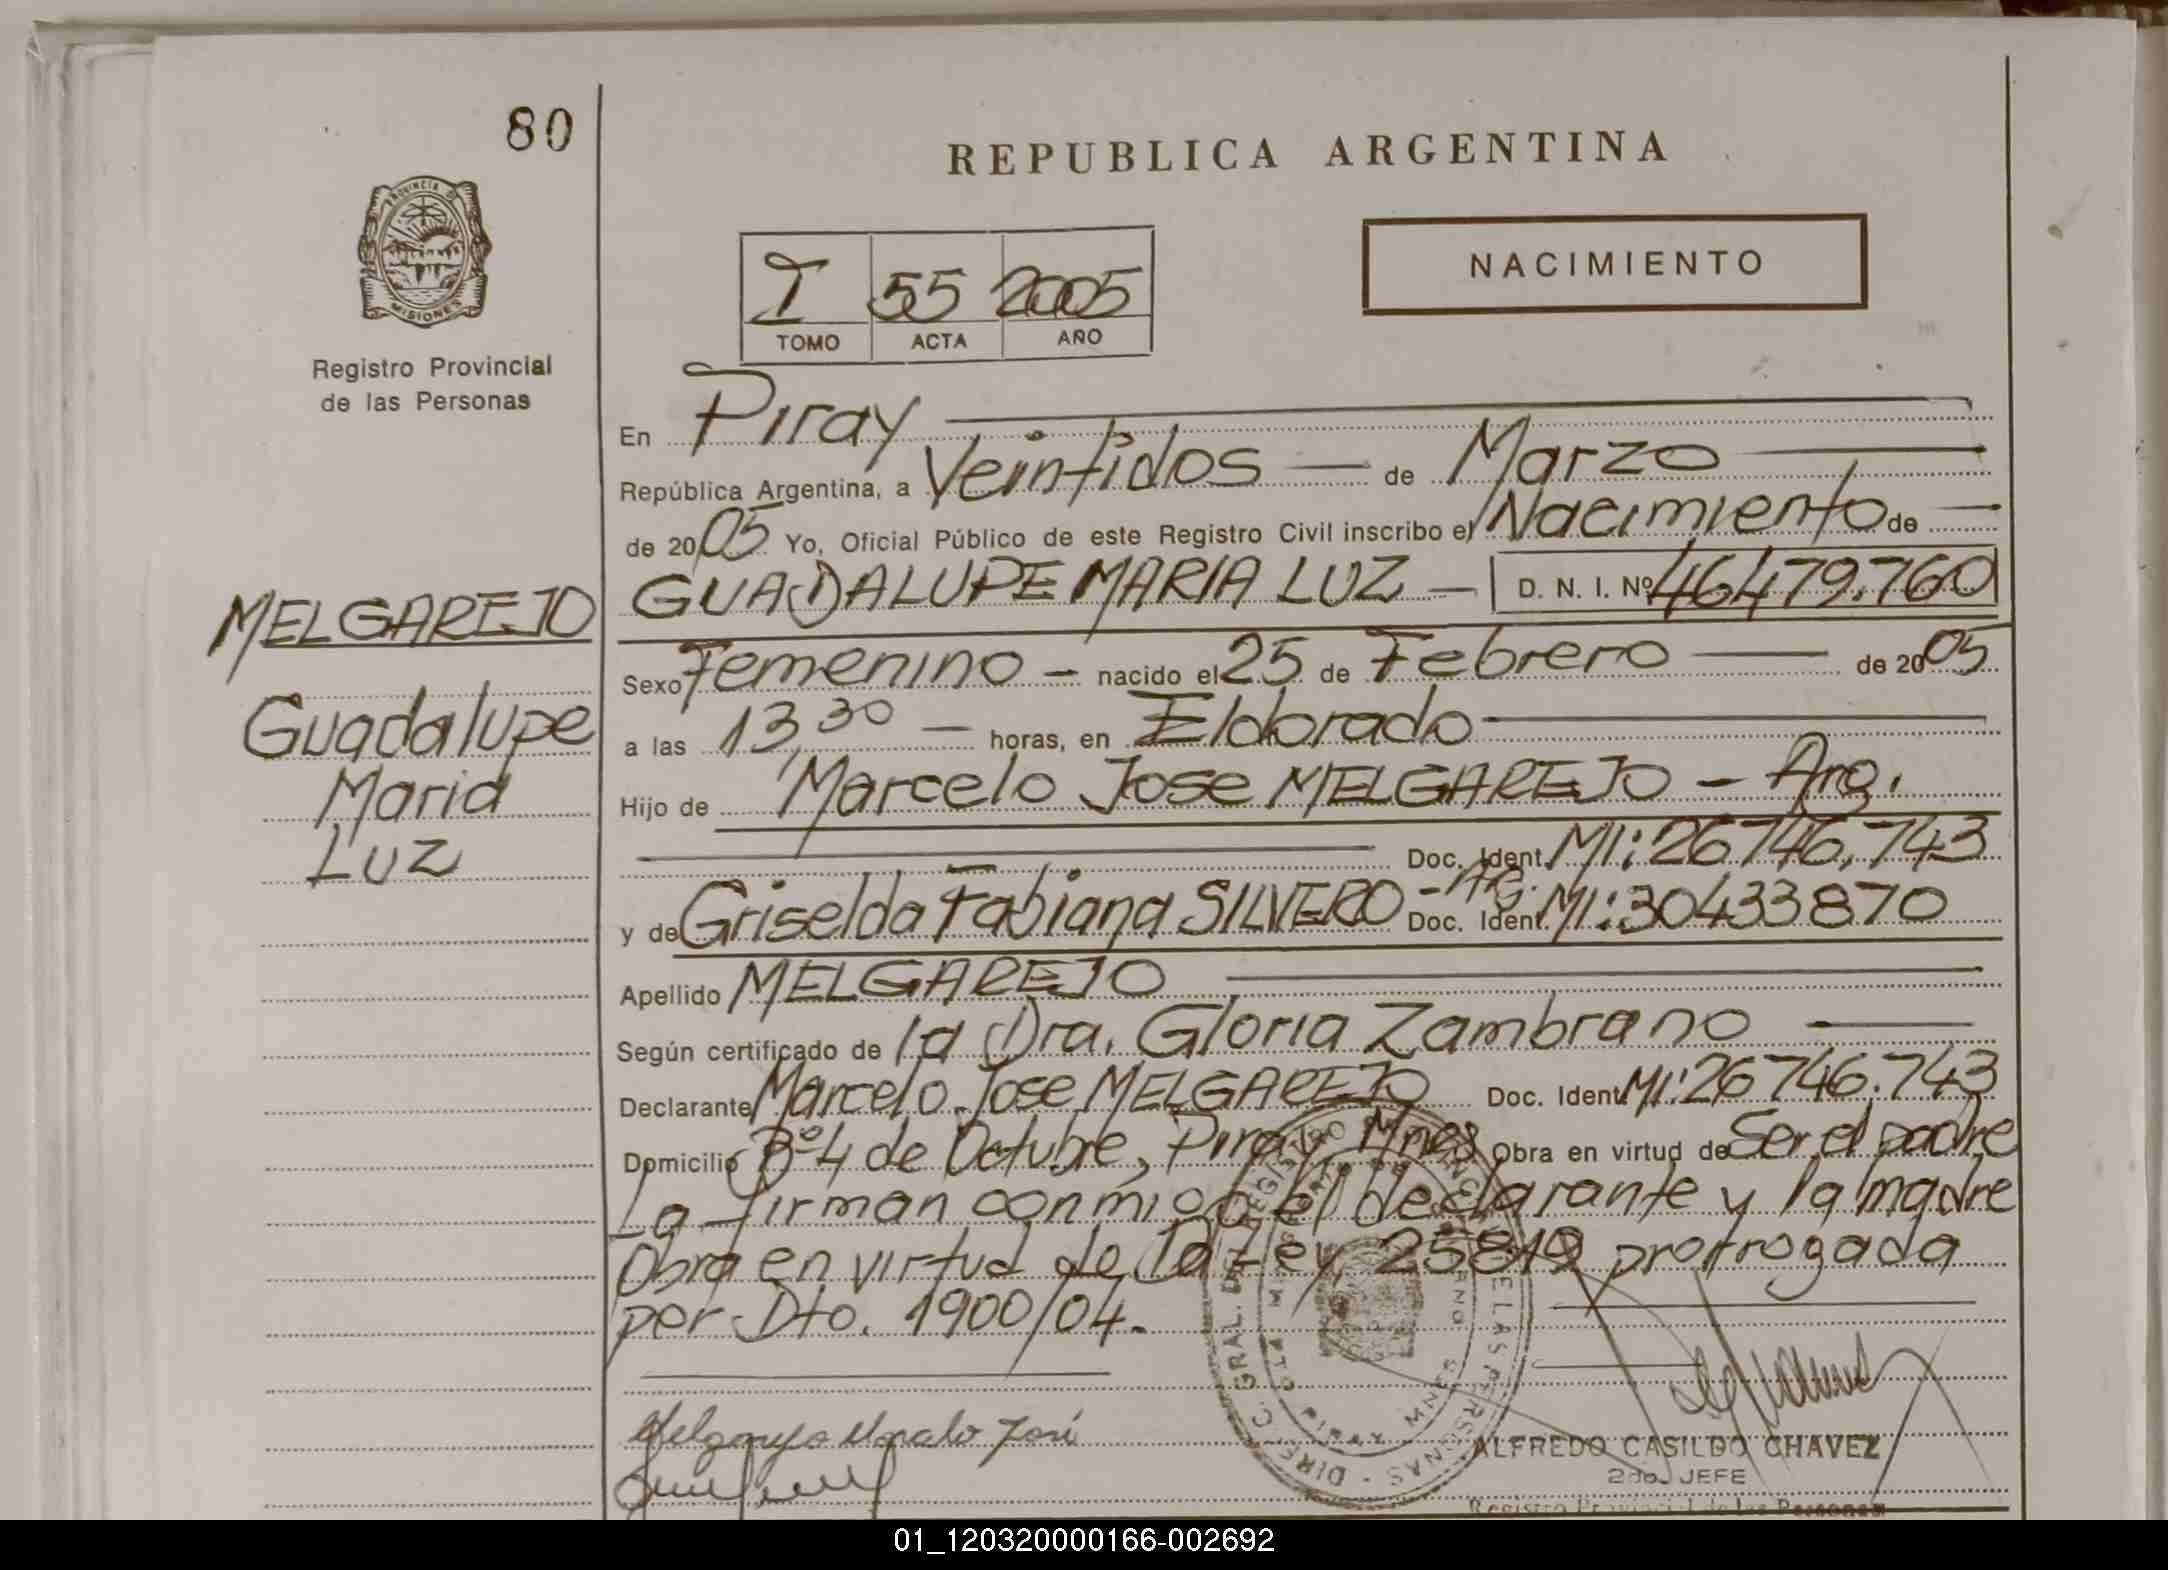 80
REPUBLICA ARGENTINA
PROVINCIA D
MISIONES
NACIMIENTO
I 55 2005
TOMO ACTA AÑO
Registro Provincial
de las Personas
En Piray
República Argentina, a Veintidos de Marzo
de 2005 Yo, Oficial Público de este Registro Civil inscribo el Nacimiento de
MELGAREJO
GUADALUPE MARIA LUZ — D. N. I. Nº 46479.760
Sexo Femenino — nacido el 25 de Febrero de 2005
Guadalupe
a las 13,30 — horas, en Eldorado
Maria
Hijo de Marcelo Jose MELGAREJO - Arg.
Luz
Doc. Ident. MI: 26746.743
y de Griselda Fabiana SILVERO - Ag. Doc. Ident. MI: 30433870
Apellido MELGAREJO
Según certificado de la Dra. Gloria Zambrano
Declarante Marcelo Jose MELGAREJO Doc. Ident. MI: 26746.743
Domicilio Bº 4 de Octubre, Piray Mnes Obra en virtud de Ser el padre
La firman conmigo el declarante y la madre
Obra en virtud de la Ley 25819 prorrogada
por Dto. 1900/04.
Melgarejo Marcelo José
ALFREDO CASILDO CHAVEZ
2do. JEFE
Registro Provincial de las Personas
01_120320000166-002692